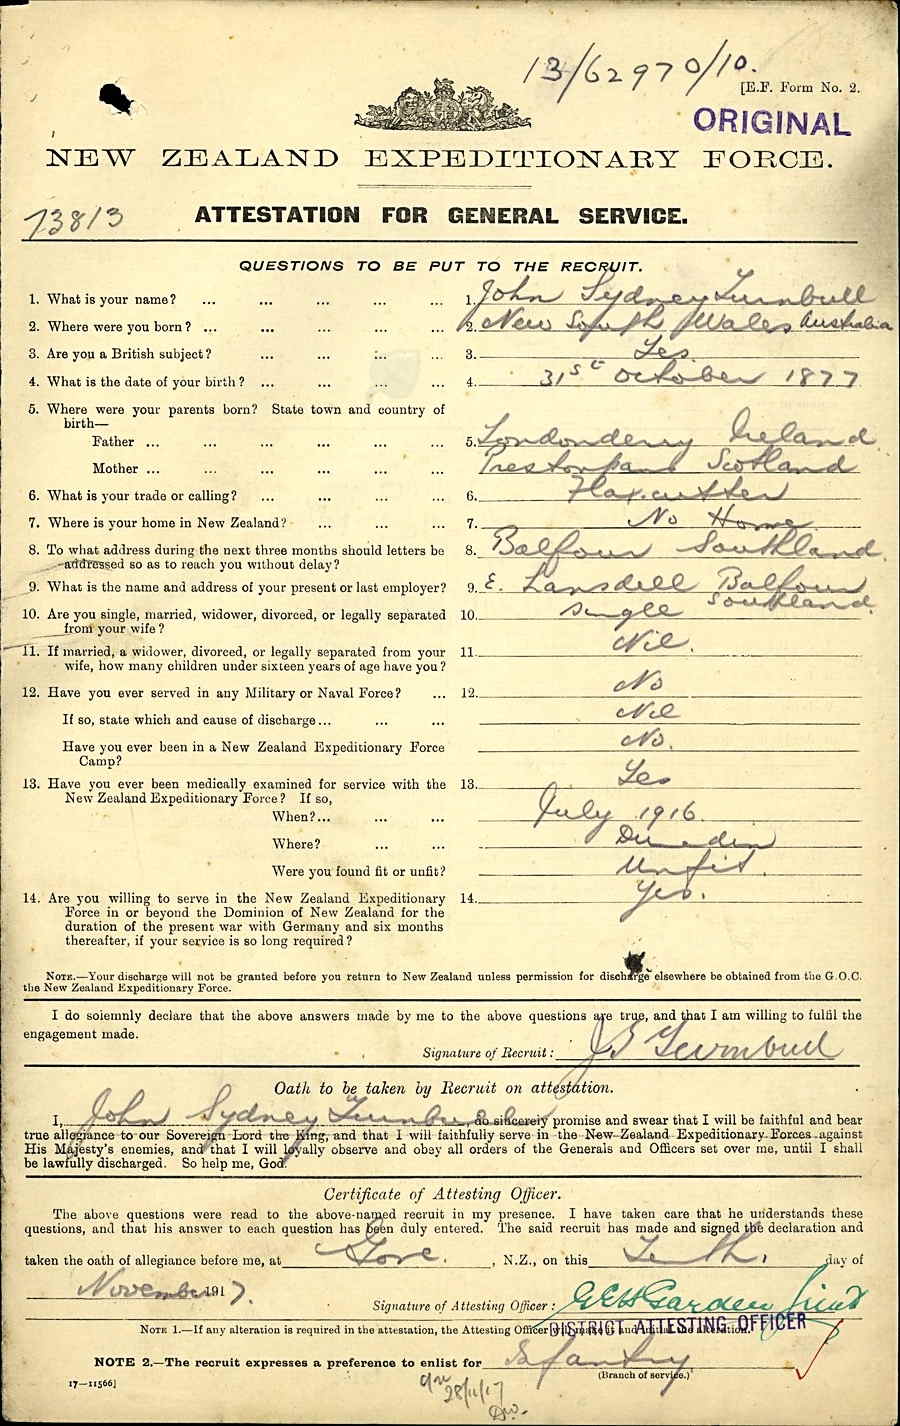 13/62970/10.
[E.F. Form No. 2.
ORIGINAL
NEW ZEALAND EXPEDITIONARY FORCE.
73813
ATTESTATION FOR GENERAL SERVICE.
QUESTIONS TO BE PUT TO THE RECRUIT.
1. What is your name? ... ... ... ... ... 1. John Sydney Turnbull
2. Where were you born? ... ... ... ... ... 2. New South Wales Australia
3. Are you a British subject? ... ... ... ... 3. Yes.
4. What is the date of your birth? ... ... ... ... 4. 31st October 1877
5. Where were your parents born? State town and country of
birth—
Father ... ... ... ... ... ... 5. Londonderry Ireland
Mother ... ... ... ... ... ... Prestonpans Scotland
6. What is your trade or calling? ... ... ... ... 6. Flax-cutter
7. Where is your home in New Zealand? ... ... ... 7. No Home
8. To what address during the next three months should letters be 8. Balfour Southland.
addressed so as to reach you without delay?
9. What is the name and address of your present or last employer? 9. E. Lansdell Balfour
Southland.
10. Are you single, married, widower, divorced, or legally separated 10. Single
from your wife?
11. If married, a widower, divorced, or legally separated from your 11. Nil.
wife, how many children under sixteen years of age have you?
12. Have you ever served in any Military or Naval Force? ... 12. No
If so, state which and cause of discharge... ... ... Nil
Have you ever been in a New Zealand Expeditionary Force No.
Camp?
13. Have you ever been medically examined for service with the 13. Yes
New Zealand Expeditionary Force? If so,
When?... ... ... July 1916
Where? ... ... Dunedin
Were you found fit or unfit? Unfit.
14. Are you willing to serve in the New Zealand Expeditionary 14. Yes.
Force in or beyond the Dominion of New Zealand for the
duration of the present war with Germany and six months
thereafter, if your service is so long required?
NOTE.—Your discharge will not be granted before you return to New Zealand unless permission for discharge elsewhere be obtained from the G.O.C.
the New Zealand Expeditionary Force.
I do solemnly declare that the above answers made by me to the above questions are true, and that I am willing to fulfil the
engagement made.
Signature of Recruit: J S Turnbull
Oath to be taken by Recruit on attestation.
I, John Sydney Turnbull do sincerely promise and swear that I will be faithful and bear
true allegiance to our Sovereign Lord the King, and that I will faithfully serve in the New Zealand Expeditionary Forces against
His Majesty's enemies, and that I will loyally observe and obey all orders of the Generals and Officers set over me, until I shall
be lawfully discharged. So help me, God.
Certificate of Attesting Officer.
The above questions were read to the above-named recruit in my presence. I have taken care that he understands these
questions, and that his answer to each question has been duly entered. The said recruit has made and signed the declaration and
taken the oath of allegiance before me, at Gore. , N.Z., on this Tenth. day of
November 1917.
Signature of Attesting Officer:
DISTRICT ATTESTING OFFICER
NOTE 1.—If any alteration is required in the attestation, the Attesting Officer will make it and initial the alteration.
NOTE 2.—The recruit expresses a preference to enlist for Infantry
(Branch of service.)
17—11566]
28/11/17